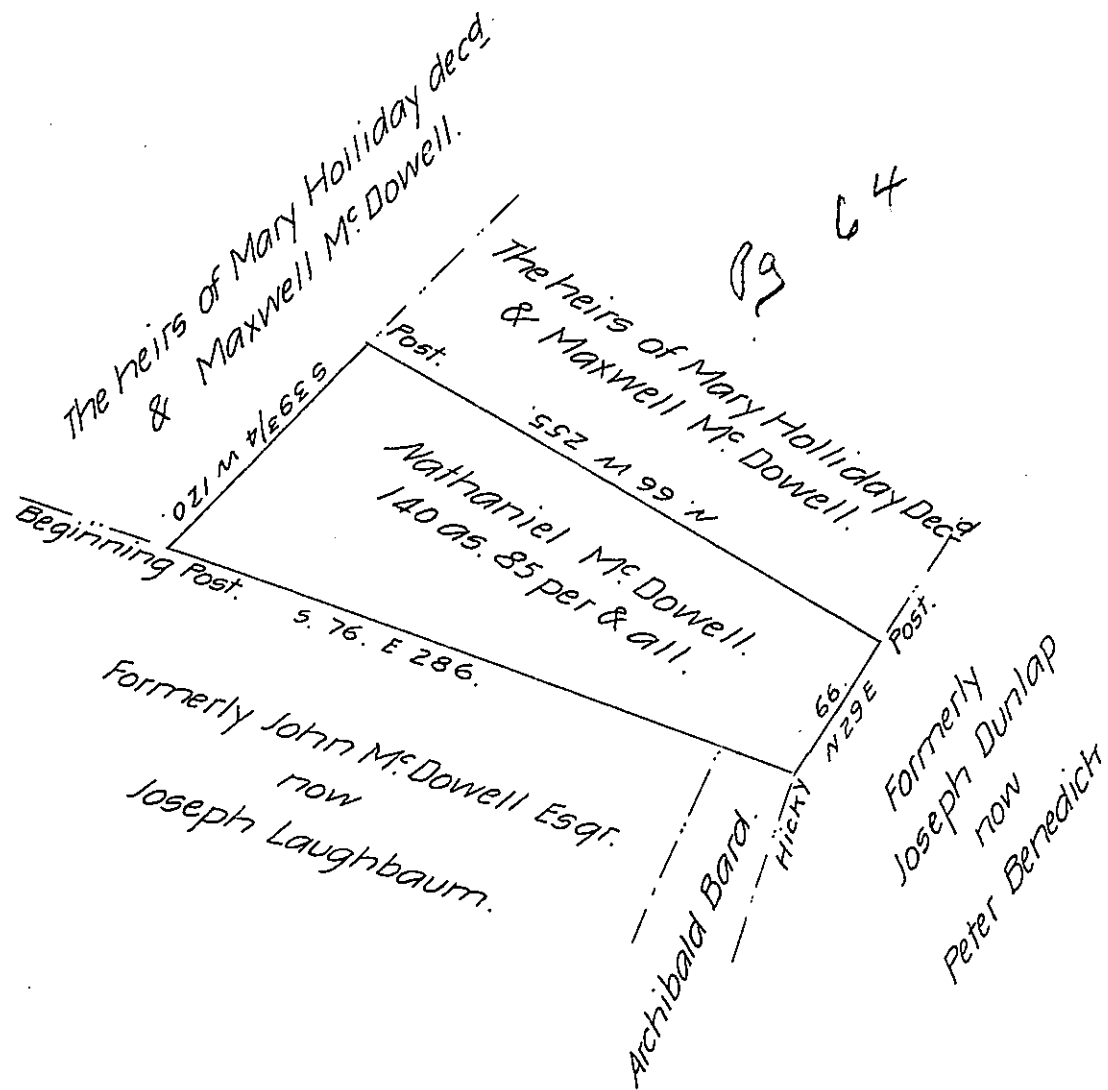 The heirs of Mary Holliday decd.
& Maxwell Mc Dowell.
64
The heirs of Mary Holliday Decd
& Maxwell Mc Dowell.
Post.
S 39 3/4 W 120.
N. 66 W 255.
Nathaniel Mc Dowell.
140 as. 85 per & all.
Beginning Post.
S. 76. E 286.
Post.
66.
N 29 E
Hicky
Formerly John McDowell Esqr.
now
Joseph Laughbaum.
Archibald Bard.
Formerly
Joseph Dunlap
now
Peter Benedich